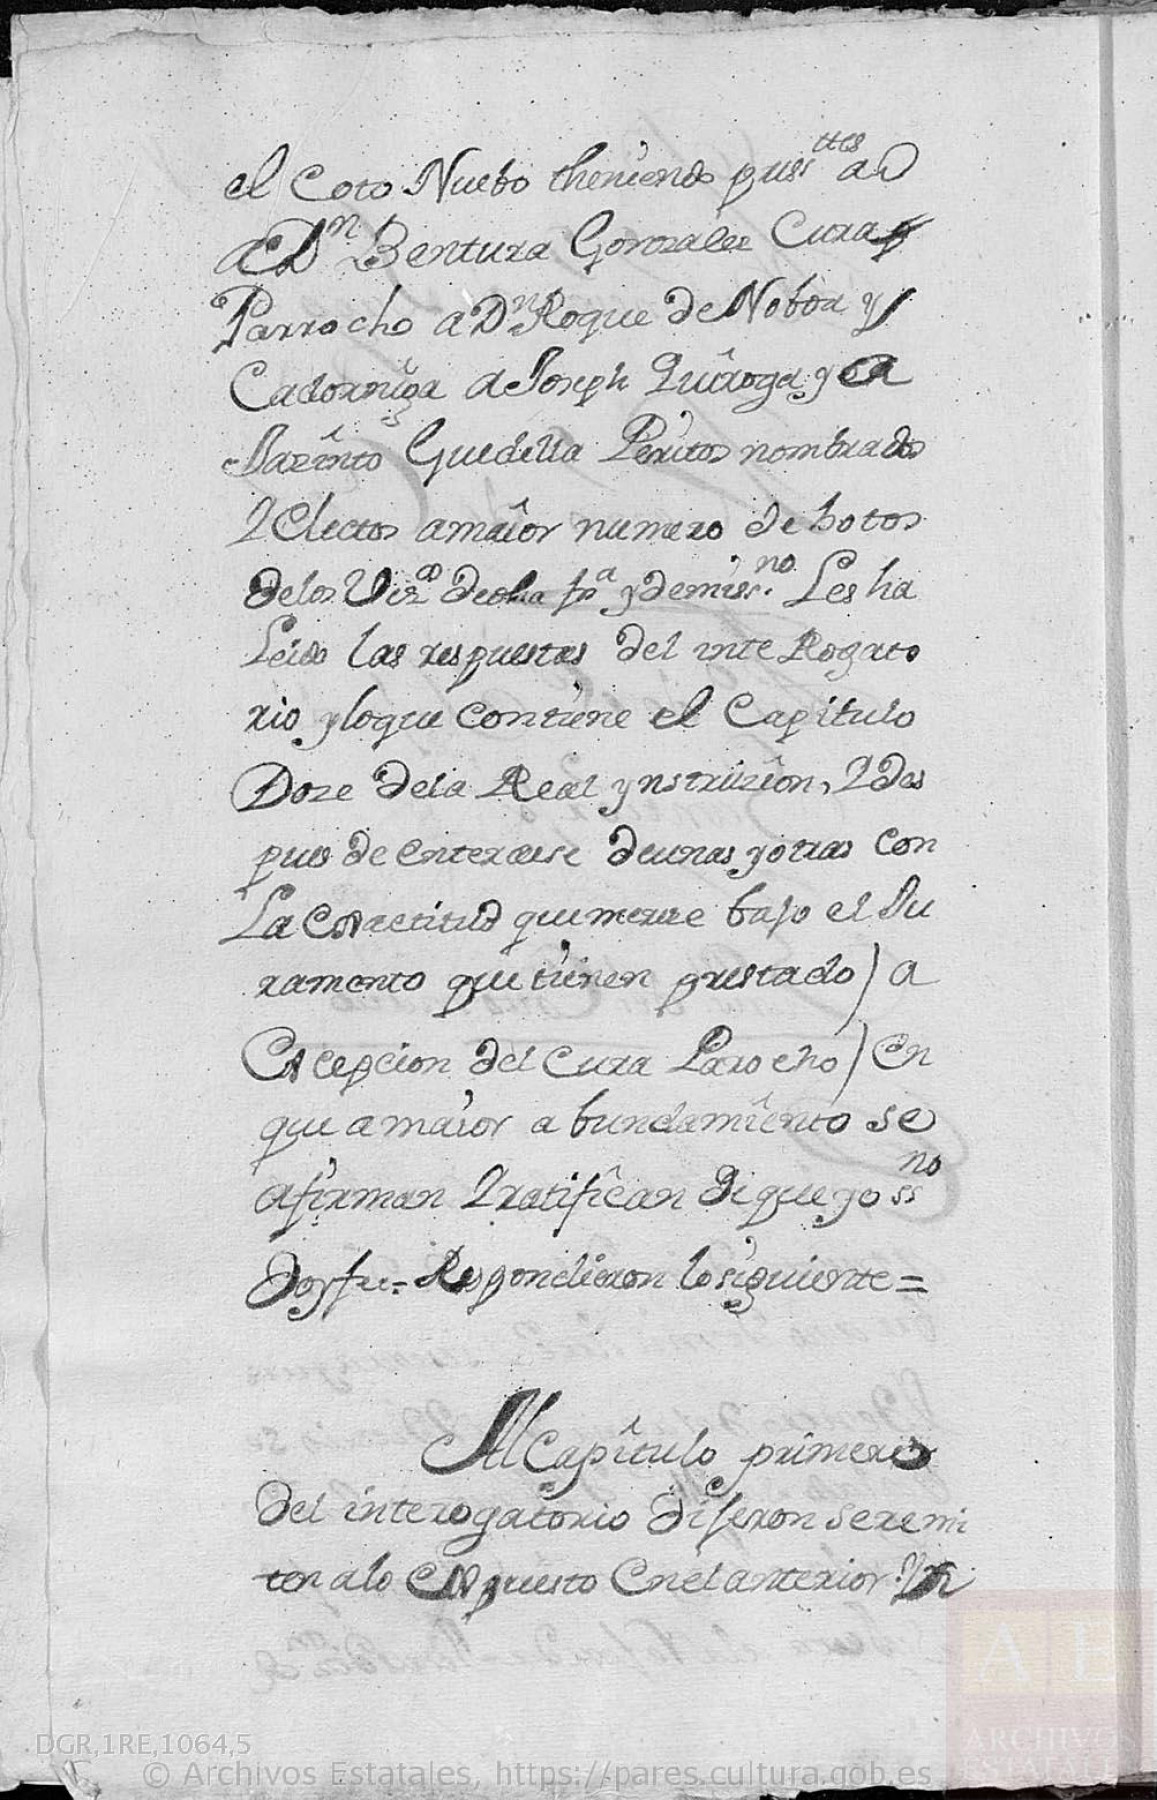 el Coto Nuebo theniendo press.ttes a D
a Dn Bentura Gonzalez Cura
Parrocho a Dn Roque de Noboa y
Cadorniga a Joseph Quiroga y a
Jazinto Guedella Peritos nombrados
Electos a maior numero de botos
de los Vez.os de dha fra y demiss.no Les ha
Leido las respuestas del inteRogato
rio y lo que contiene el Capitulo
Doze de la Real ynstruzion, Y des
pues de enterarse de unas y otras con
La Exactitud que mereze bajo el Ju
ramento que tienen prestado) a
Excepcion del Cura Parocho) En
que a maior abundamiento se
afirman Y ratifican di que yo ssno
Doy fee= Respondieron lo siguiente=
Al Capitulo primero
del interogatorio dijeron se remi
ten a lo Expuesto En el anterior
DGR,1RE,1064,5
© Archivos Estatales, https://pares.cultura.gob.es
AE
ARCHIVOS
ESTATALES